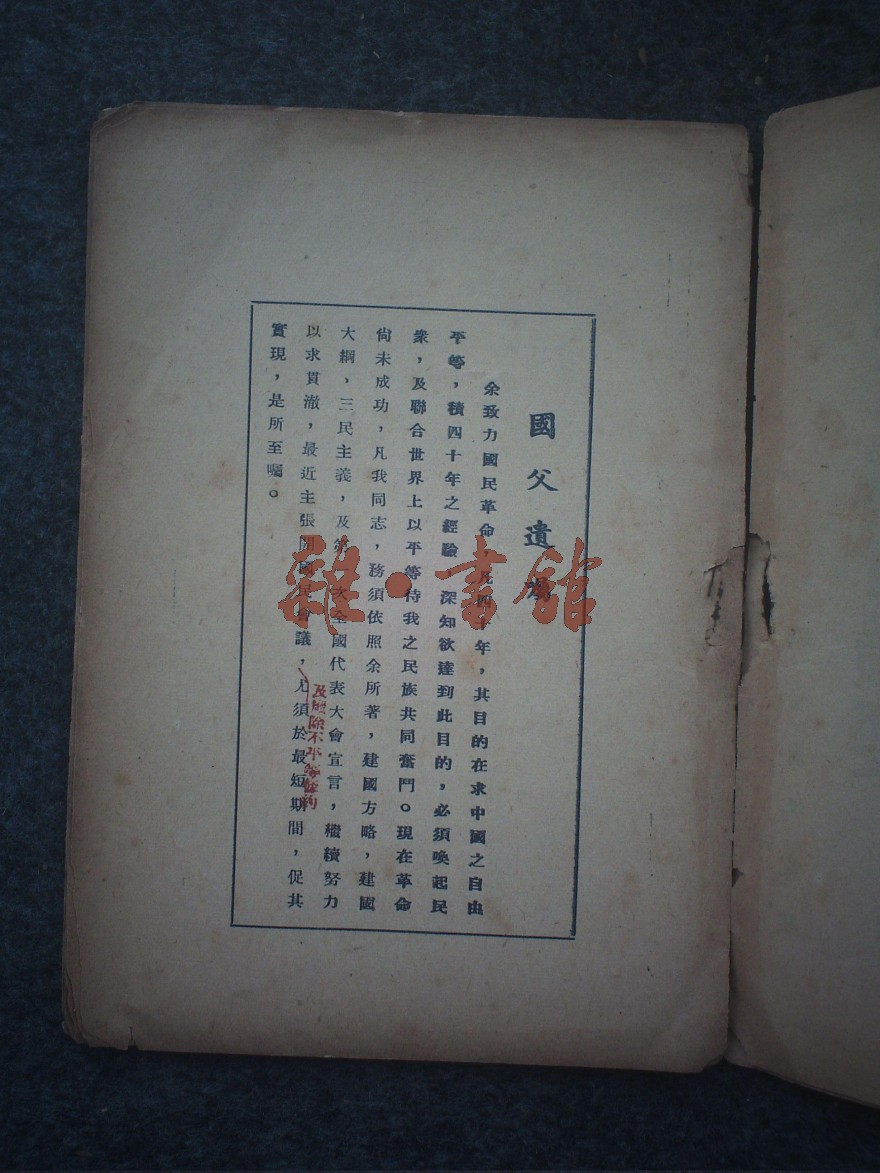 國父遺囑
余致力國民革命,凡四十年,其目的在求中國之自由
平等,積四十年之經驗,深知欲達到此目的,必須喚起民
衆,及聯合世界上以平等待我之民族共同奮鬥。現在革命
尙未成功,凡我同志,務須依照余所著,建國方略,建國
大綱,三民主義,及第一次全國代表大會宣言,繼續努力
以求貫澈,最近主張開國民會議,尤須於最短期間,促其
及廢除不平等條約
實現,是所至囑。
雜·書館